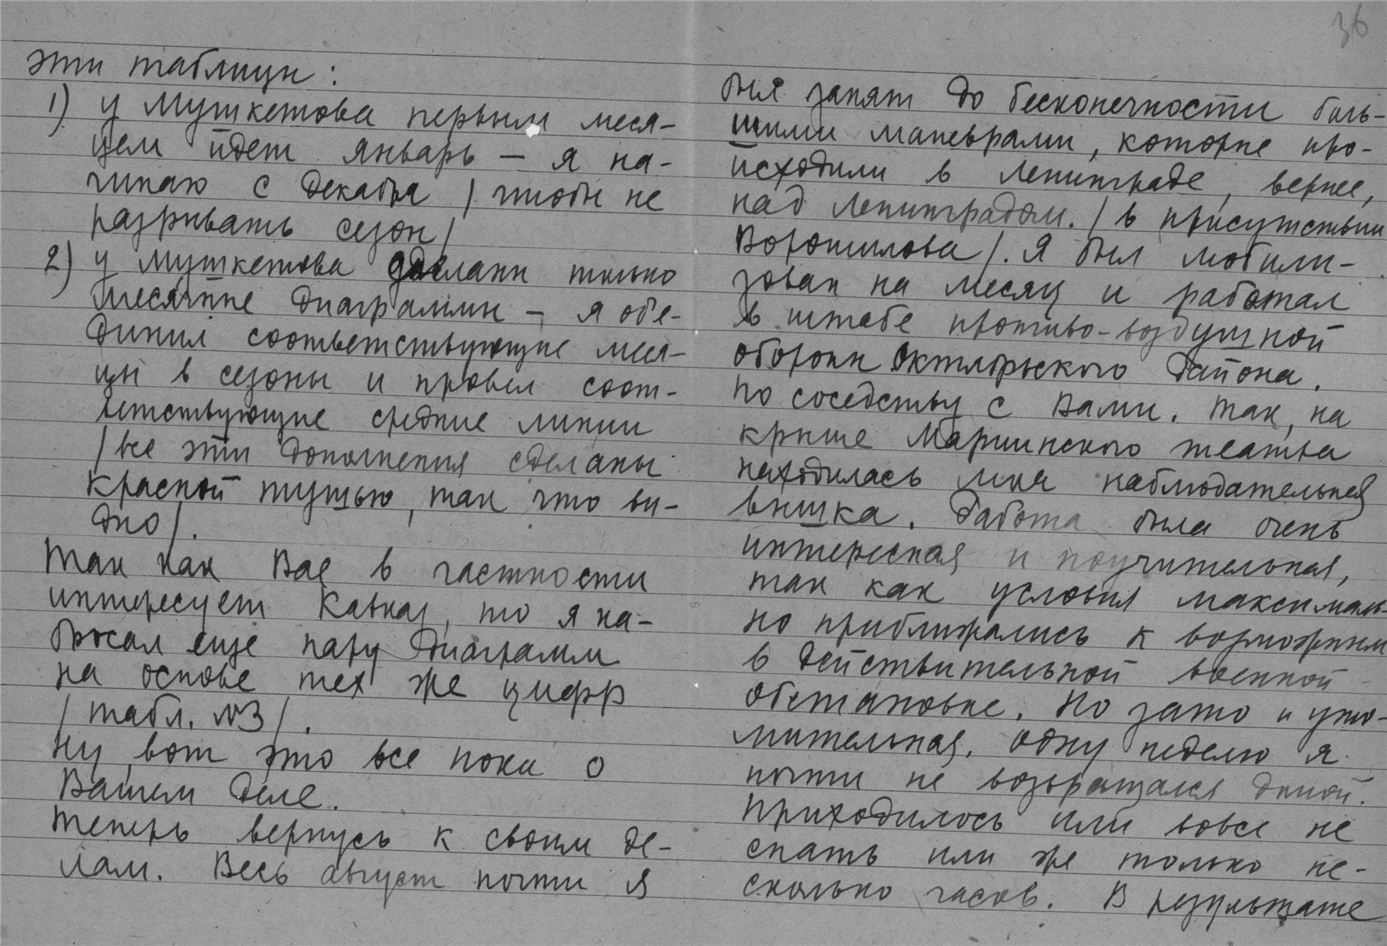 36
эти таблицы:
1) у Мушкетова первым меся-
цем идет январь – я на-
чинаю с декабря / чтобы не
разрывать сезон/
2) у Мушкетова сделаны только
месячные диаграммы – я объе-
динил соответствующие меся-
цы в сезоны и провел соот-
ветствующие средние линии
/все эти дополнения сделаны
красной тушью, так что ви-
дно/.
Так как Вас в частности
интересует Кавказ, то я на-
бросал еще пару диаграмм
на основе тех же цифр
/табл. №3/.
Ну, вот это все пока о
Вашем деле.
Теперь вернусь к своим де-
лам. Весь август почти я
был занят до бесконечности боль-
шими маневрами, которые про-
исходили в Ленинграде, вернее,
над Ленинградом. /в присутствии
Ворошилова/. Я был мобили-
зован на месяц и работал
в штабе противо-воздушной
обороны Октябрьского района.
По соседству с Вами. Так, на
крыше Мариинского театра
находилась моя наблюдательная
вышка. Работа была очень
интересная и поучительная,
так как условия максималь-
но приближались к возможным
в действительной военной
обстановке. Но зато и уто-
мительная. Одну неделю я
почти не возвращался домой.
Приходилось или вовсе не
спать или же только не-
сколько часов. В результате